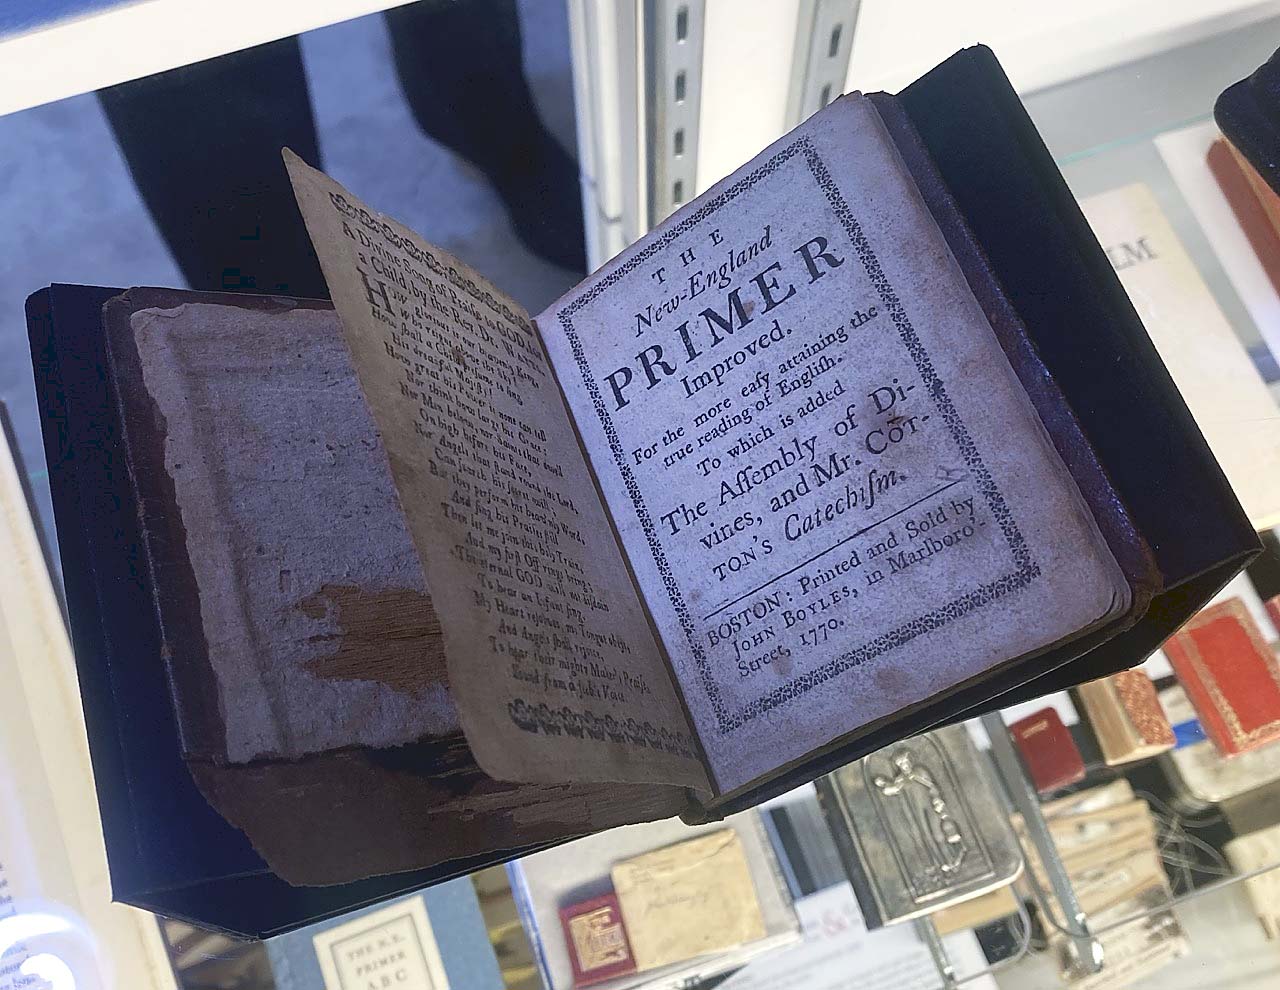 A Divine Song of Praiſe to GOD, for
a Child, by the Rev. Dr. WATTS.
HOW glorious is our heavenly King,
Who reigns above the Sky!
How ſhall a Child preſume to ſing
His dreadful Majeſty?
How great his Power is none can tell
Nor think how large his Grace;
Nor Men below, nor Saints that dwell
On high before his Face,
Nor Angels that ſtand round the Lord,
Can ſearch his ſecret will;
But they perform his heav'nly Word,
And ſing his Praiſes ſtill
Then let me join this holy Train,
And my firſt Off'rings bring;
The eternal GOD will not diſdain
To hear an Infant ſing.
My Heart reſolves, my Tongue obeys,
And Angels ſhall rejoice,
To hear their mighty Maker's Praiſe,
Sound from a feeble Voice.
THE
New-England
PRIMER
Improved.
For the more eaſy attaining the
true reading of Engliſh.
To which is added
The Aſſembly of Di-
vines, and Mr. COT-
TON's Catechiſm.
BOSTON: Printed and Sold by
JOHN BOYLES, in Marlboro'-
Street, 1770.
THE N. E.
PRIMER
ABC
LM